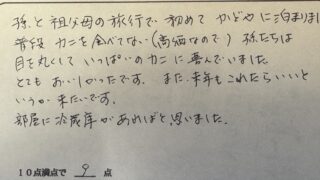 孫と祖父母の旅行で初めてかどやに泊りまし
普段カニを食べてない(高価なので)孫たちは
目を丸くていっぱいのカニに喜んでいました
とてもおいしかったです。また、来年もこれたらいいと
いうか来たいです。
部屋に冷蔵庫があればと思いました。
10点満点で 9 点